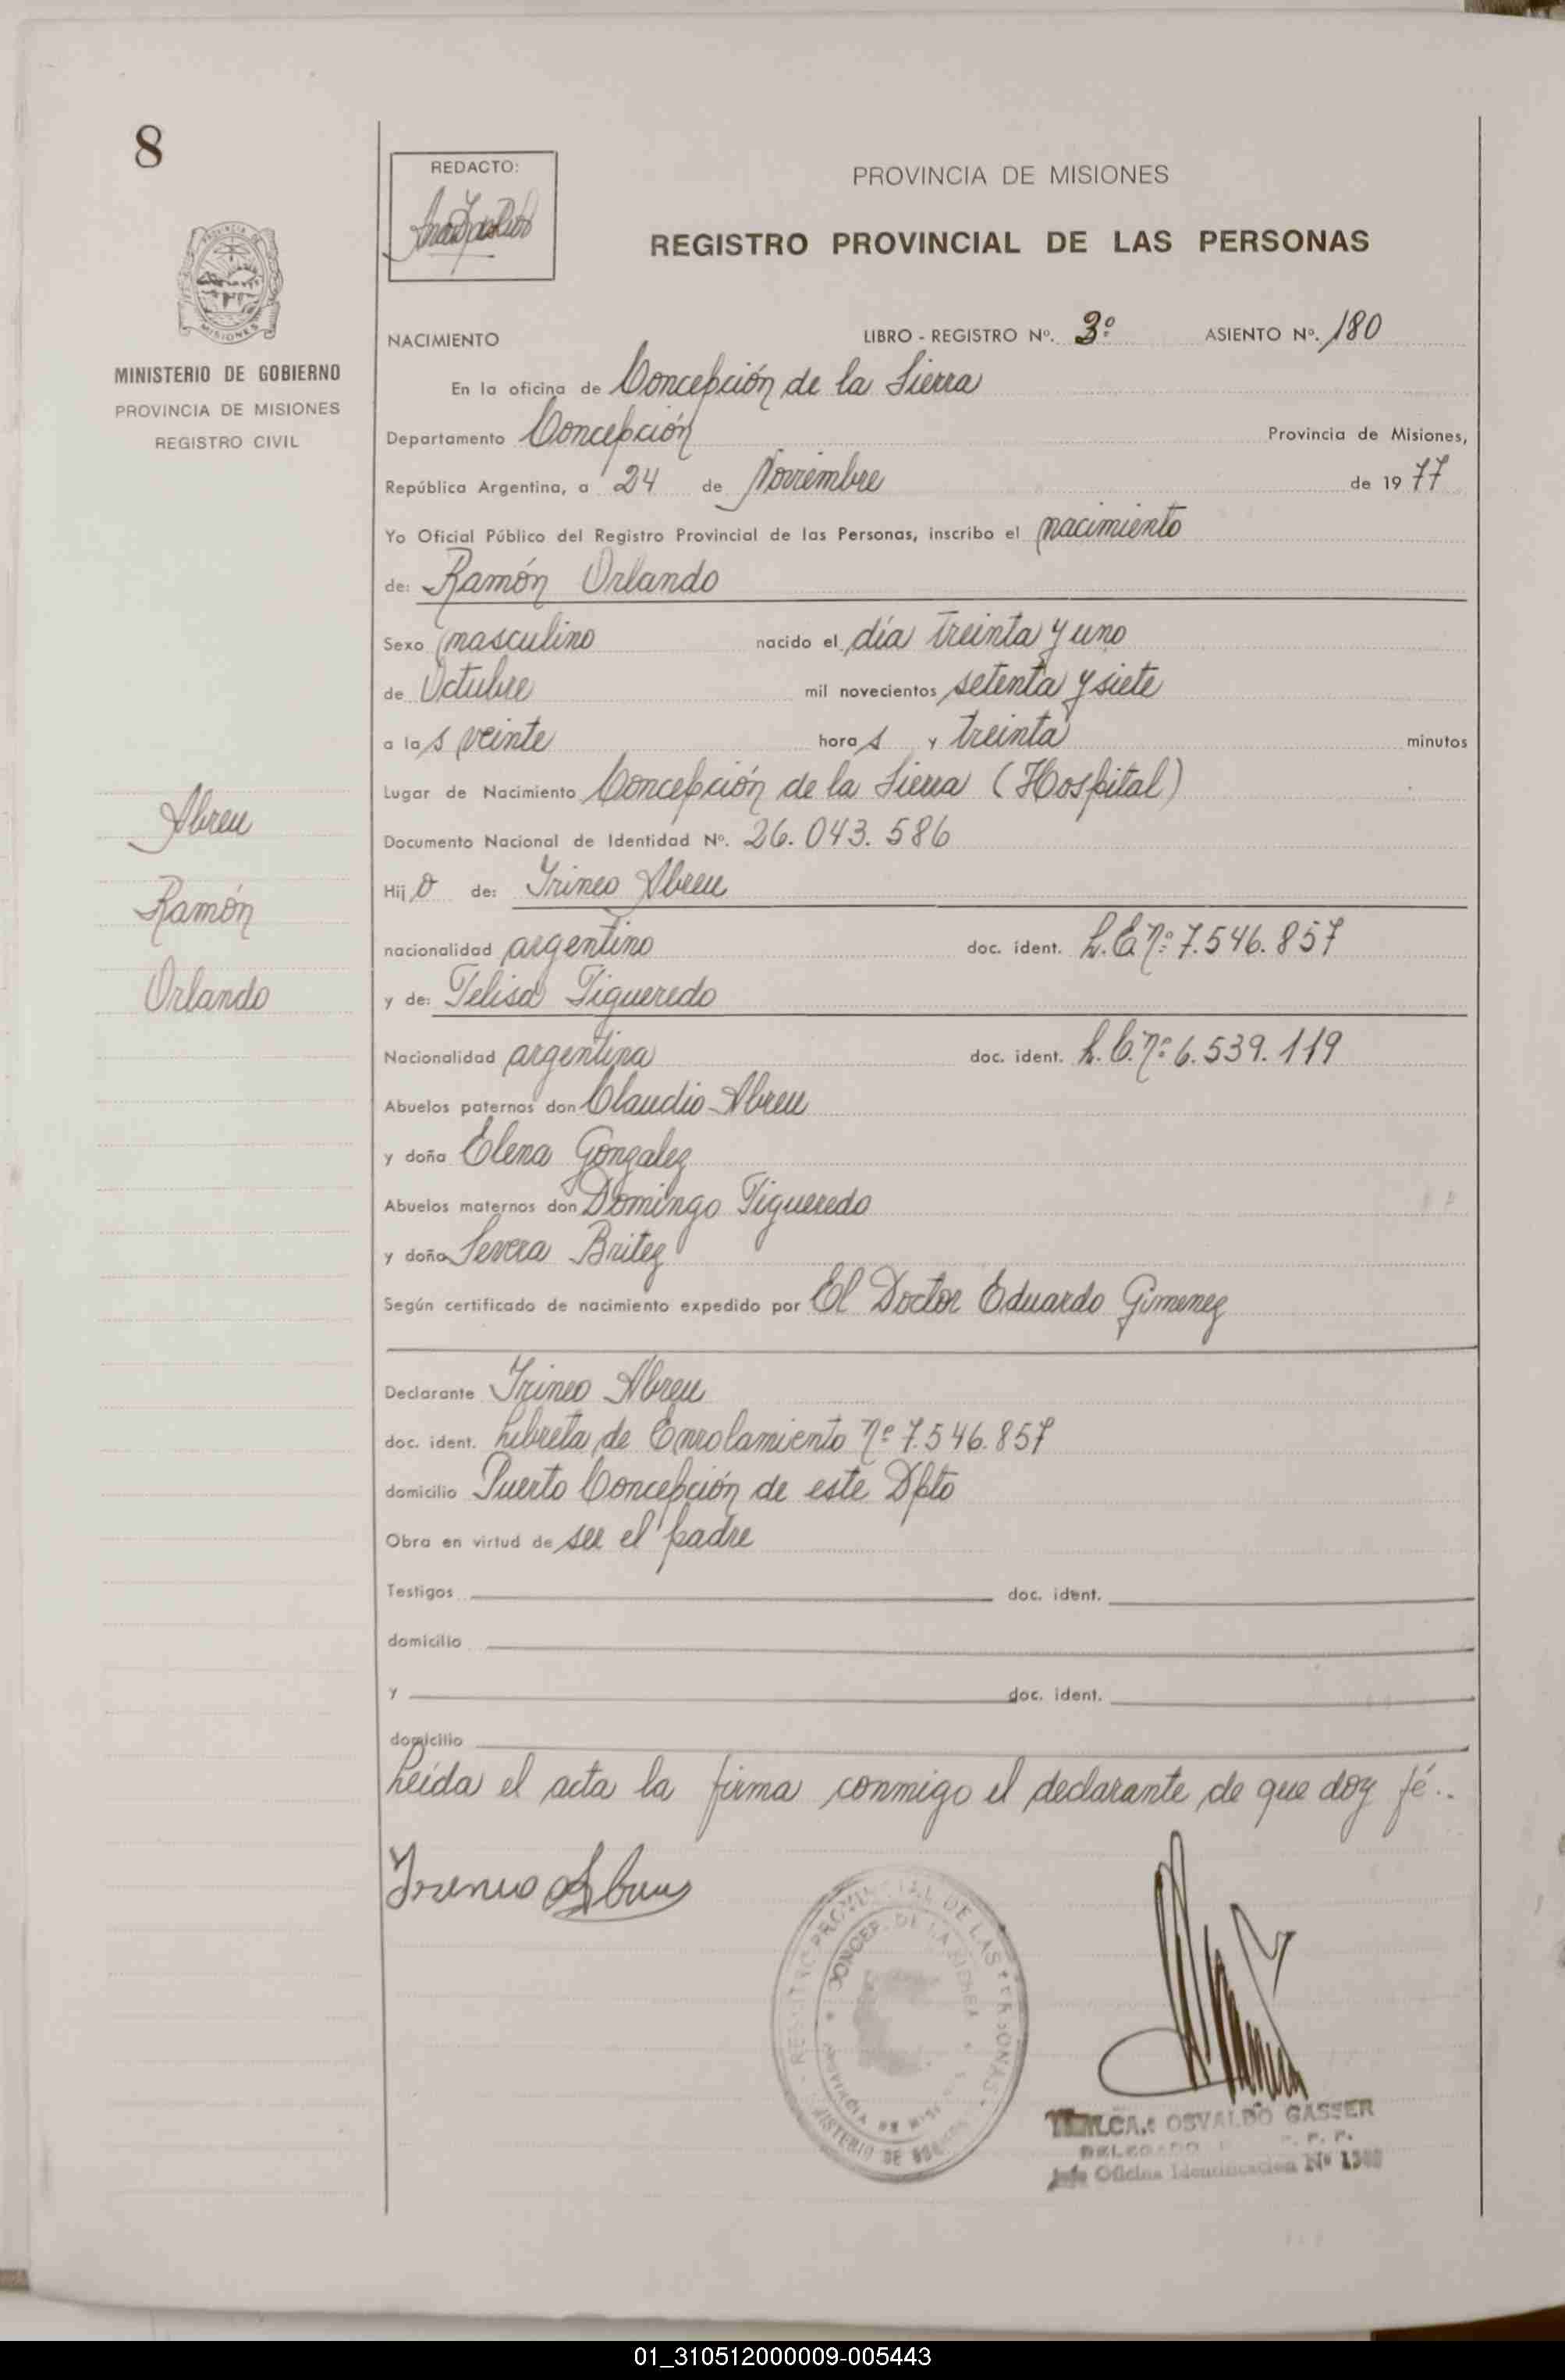 8
REDACTO:
PROVINCIA DE MISIONES
REGISTRO PROVINCIAL DE LAS PERSONAS
MISIONES
MINISTERIO DE GOBIERNO
PROVINCIA DE MISIONES
REGISTRO CIVIL
NACIMIENTO LIBRO - REGISTRO Nº. 3º ASIENTO Nº. 180
En la oficina de Concepción de la Sierra
Departamento Concepción Provincia de Misiones,
República Argentina, a 24 de Noviembre de 1977
Yo Oficial Público del Registro Provincial de las Personas, inscribo el nacimiento
de: Ramón Orlando
Sexo masculino nacido el día treinta y uno
de Octubre mil novecientos setenta y siete
a las veinte horas y treinta minutos
Lugar de Nacimiento Concepción de la Sierra (Hospital)
Documento Nacional de Identidad Nº. 26.043.586
Hijo de: Irineo Abreu
nacionalidad argentino doc. ident. L.E. nº: 7.546.857
y de: Felisa Figueredo
Nacionalidad argentina doc. ident. L.C. nº: 6.539.119
Abuelos paternos don Claudio Abreu
y doña Elena Gonzalez
Abuelos maternos don Domingo Figueredo
y doña Severa Britez
Según certificado de nacimiento expedido por El Doctor Eduardo Gimenez
Abreu
Ramón
Orlando
Declarante Irineo Abreu
doc. ident. Libreta de Enrolamiento nº 7.546.857
domicilio Puerto Concepción de este Dpto
Obra en virtud de ser el padre
Testigos doc. ident.
domicilio
y doc. ident.
domicilio
Leída el acta la firma conmigo el declarante de que doy fé..
Irineo Abreu
REGISTRO PROVINCIAL DE LAS PERSONAS
CONCEP. DE LA SIERRA
PROVINCIA DE MISIONES
MINISTERIO DE GOBIERNO
OSVALDO GASSER
DELEGADO
Jefe Oficina Identificación Nº
01_310512000009-005443